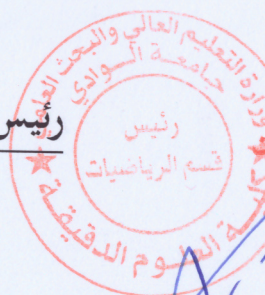 وزارة التعليم العالي والبحث العلمي
جامعة الوادي
رئيس
رئيس
قسم الرياضيات
كلية العلوم الدقيقة